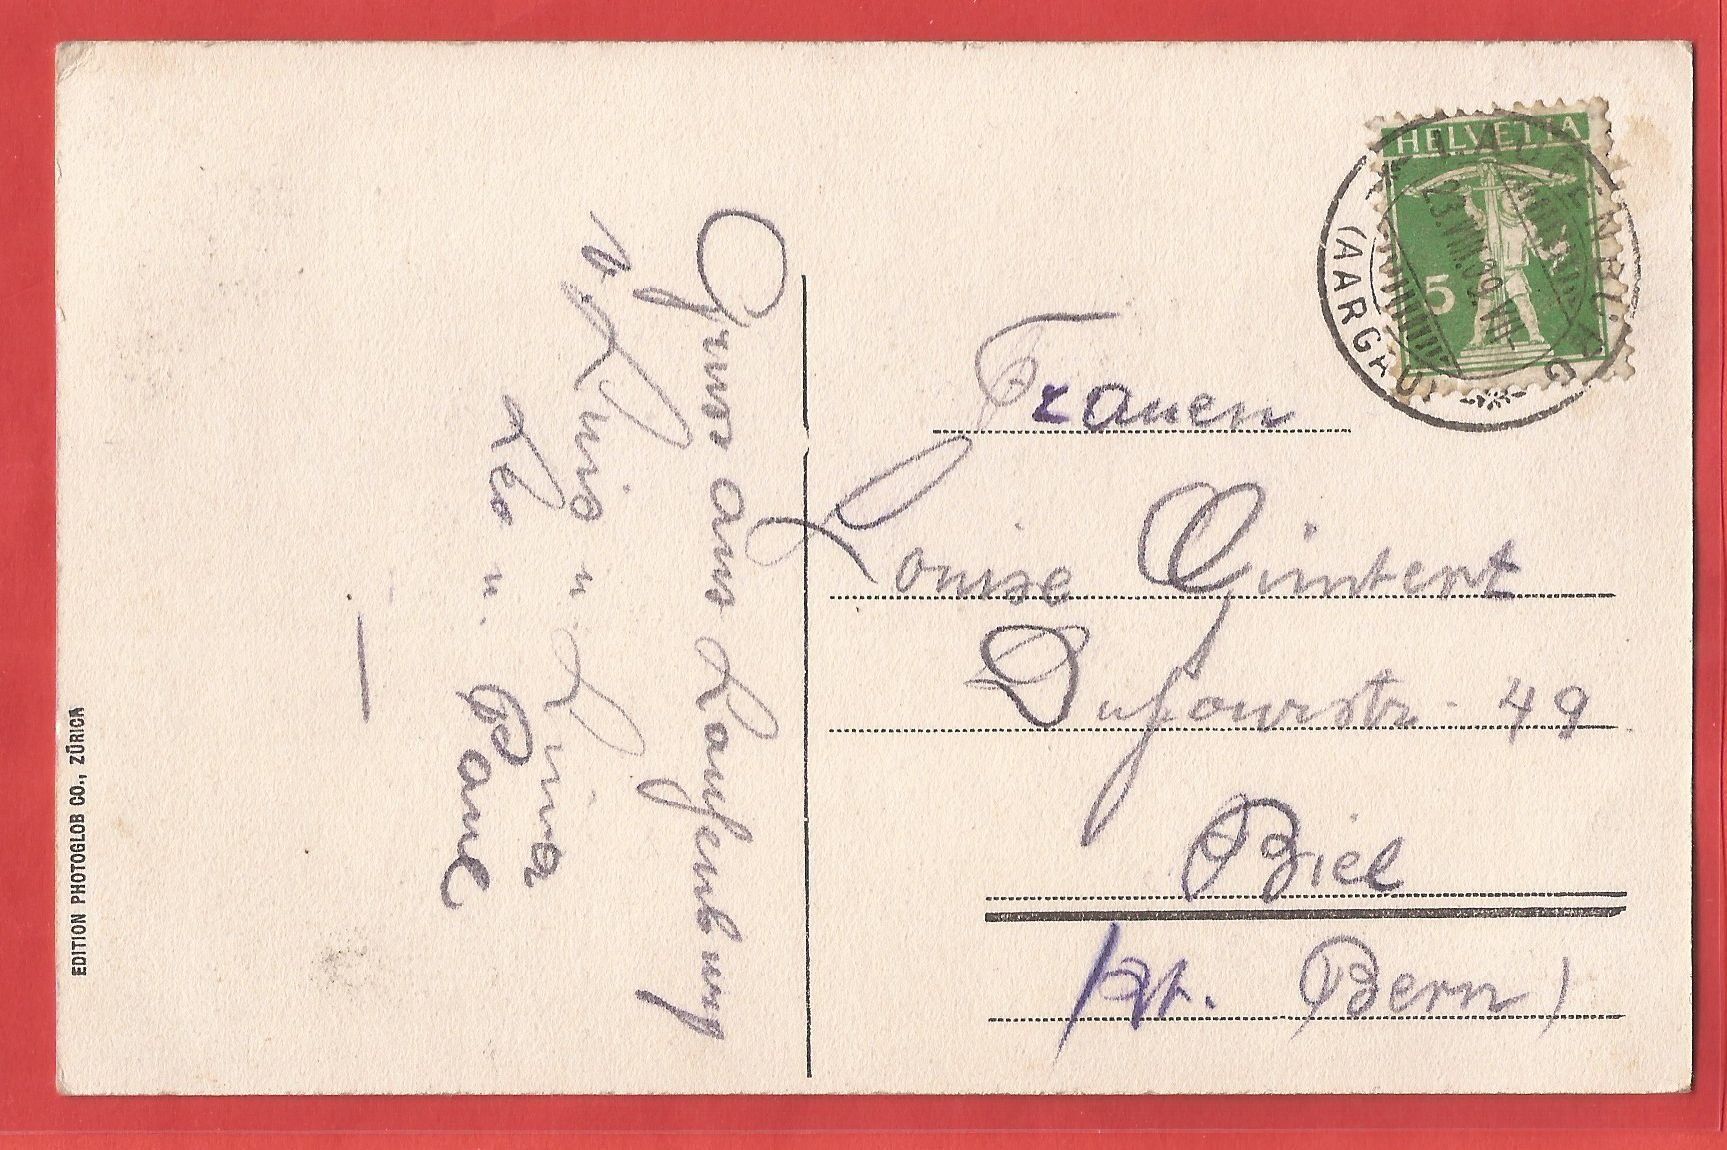 Gruss aus Laufenburg
v. Luis " Lina
Leo " Paul
Frauen
Louise Gimtert
Dufourstr. 49
Biel
(Kt. Bern)
HELVETIA
5
LAUFENBURG
23.VIII.09. VII-
(AARGAU)
EDITION PHOTOGLOB CO., ZÜRICH